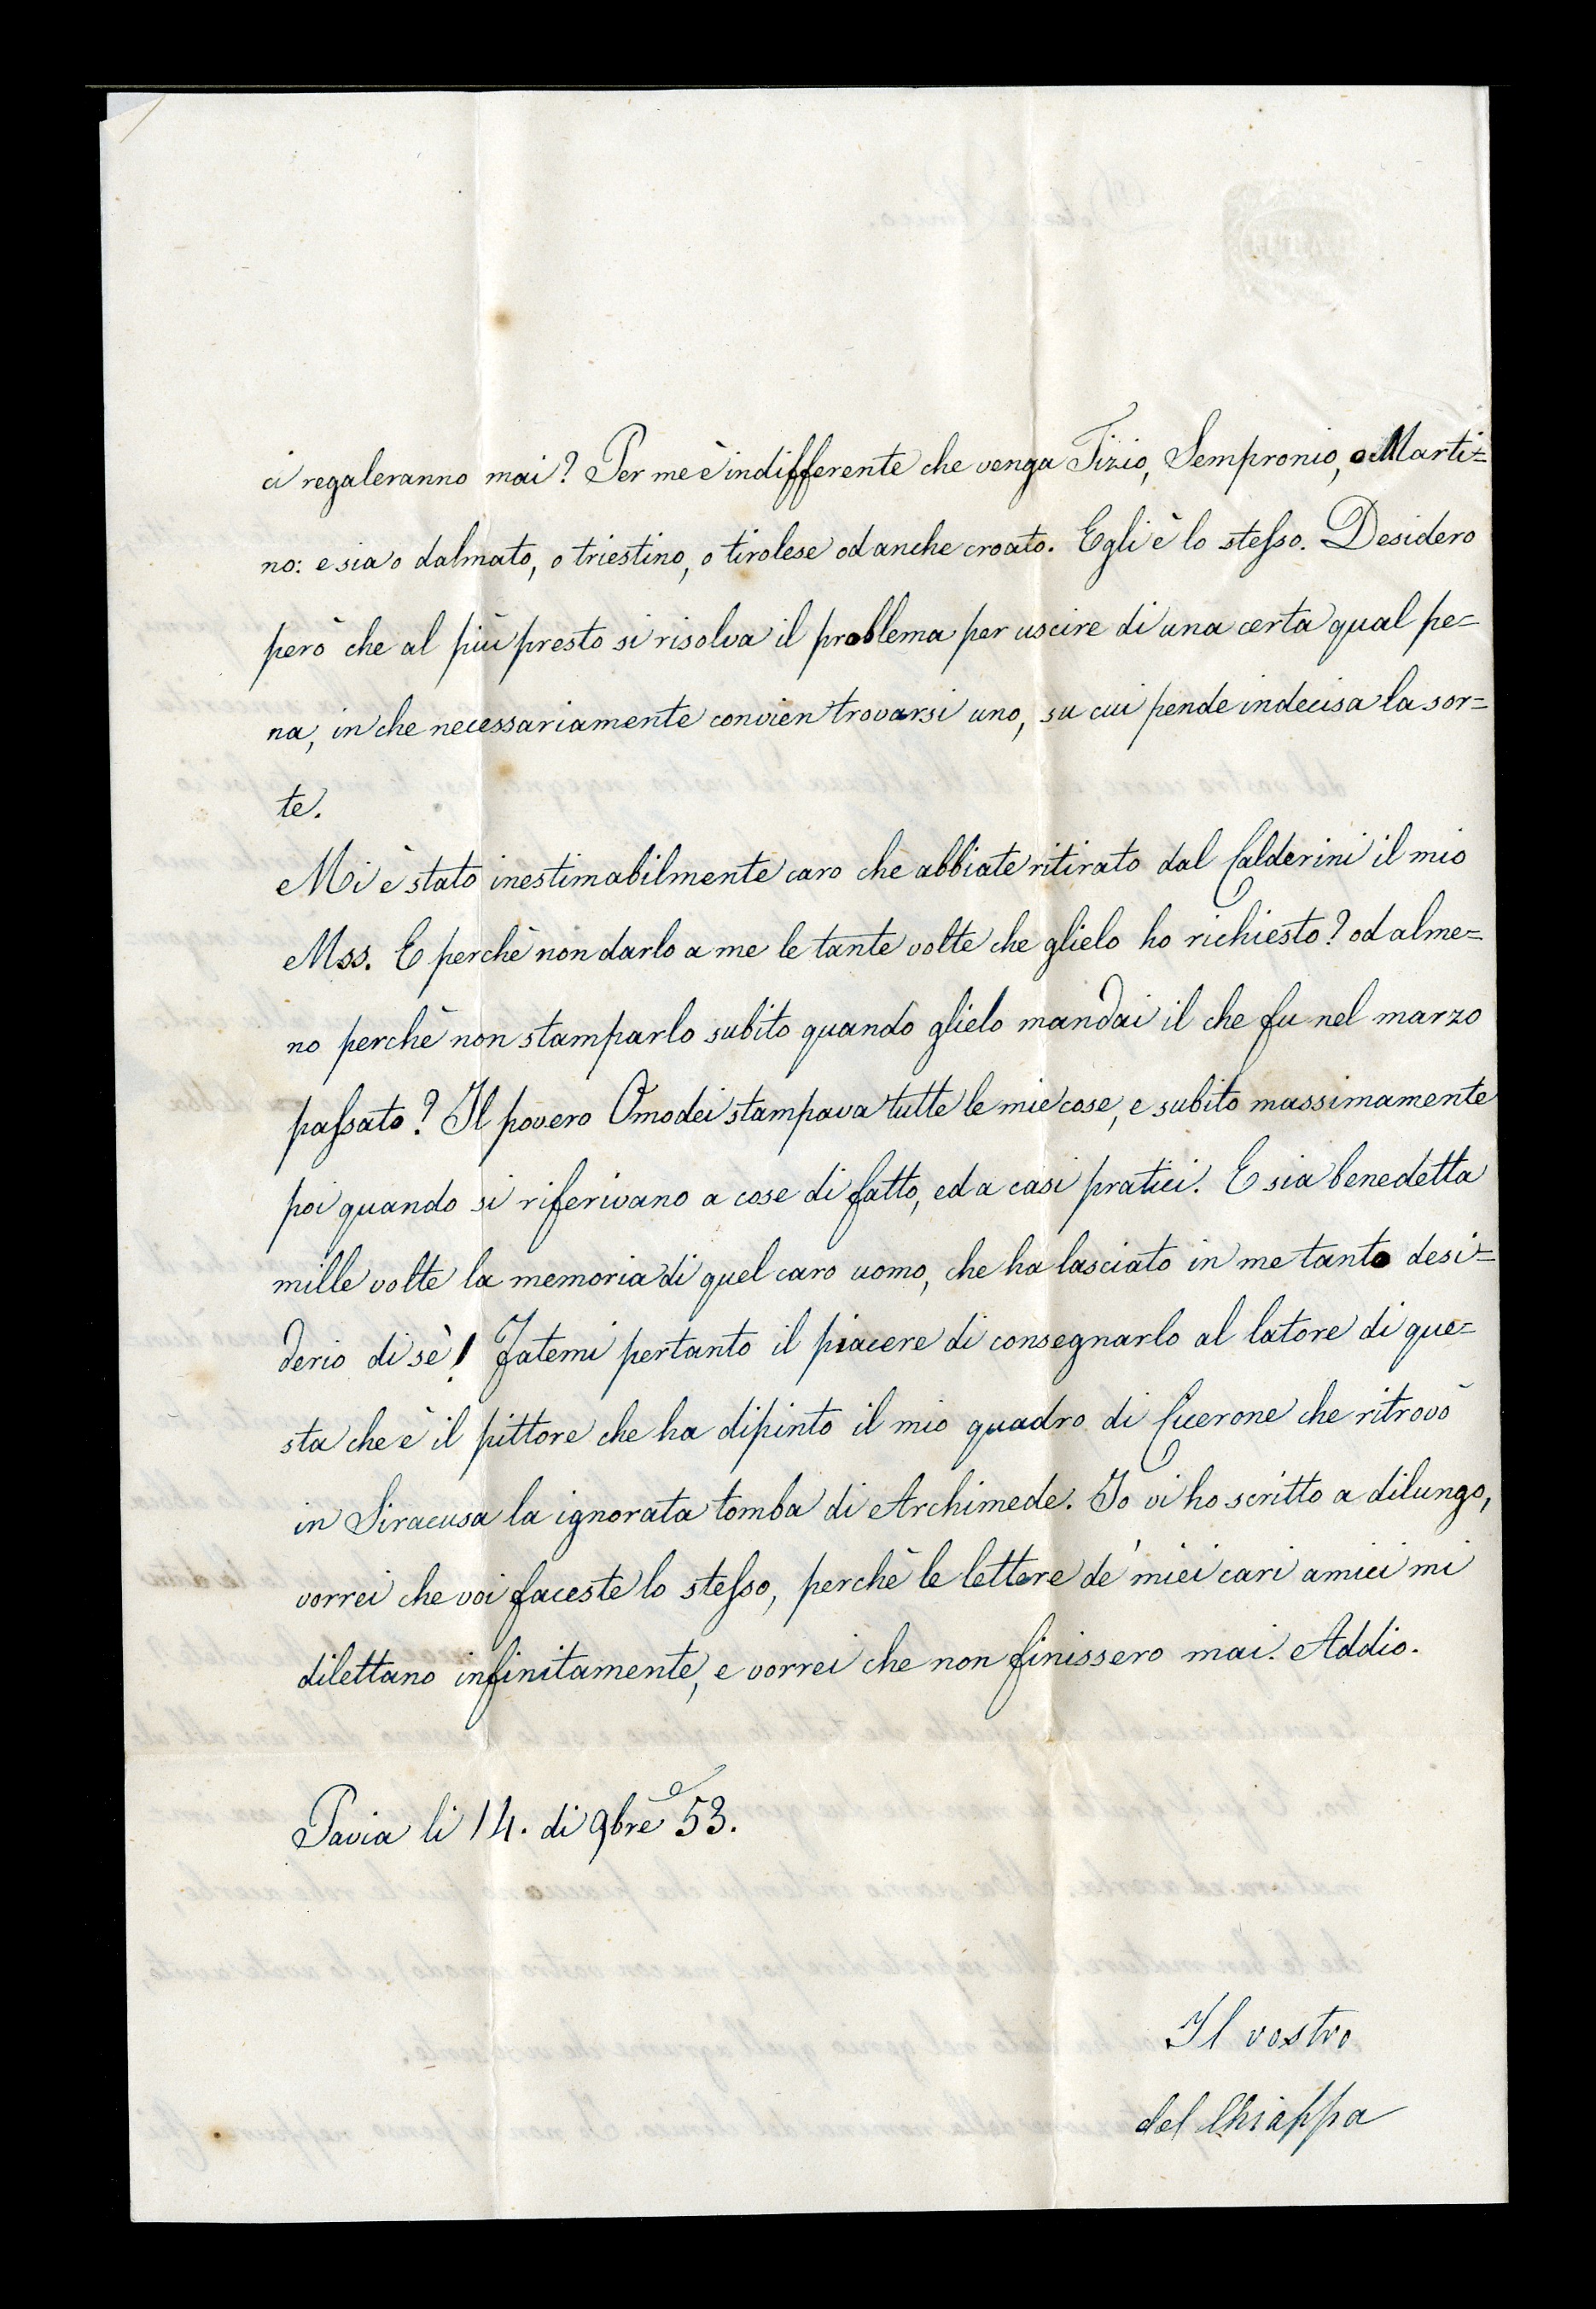 ci regaleranno mai? Per me è indifferente che venga Tizio, Sempronio, o Marti=
no: e sia o dalmato, o triestino, o tirolese od anche croato. Egli è lo stesso. Desidero
però che al più presto si risolva il problema per uscire di una certa qual pe=
na, in che necessariamente convien trovarsi uno, su cui pende indecisa la sor=
te.
Mi è stato inestimabilmente caro che abbiate ritirato dal Calderini il mio
Mss. E perchè non darlo a me le tante volte che glielo ho richiesto? od alme=
no perchè non stamparlo subito quando glielo mandai il che fu nel marzo
passato? Il povero Omodei stampava tutte le mie cose, e subito massimamente
poi quando si riferivano a cose di fatto, ed a casi pratici. E sia benedetta
mille volte la memoria di quel caro uomo, che ha lasciato in me tanto desi=
derio di sè! Fatemi pertanto il piacere di consegnarlo al latore di que=
sta che è il pittore che ha dipinto il mio quadro di Cicerone che ritrovò
in Siracusa la ignorata tomba di Archimede. Io vi ho scritto a dilungo,
vorrei che voi faceste lo stesso, perchè le lettere de' miei cari amici mi
dilettano infinitamente, e vorrei che non finissero mai. Addio.
Pavia li 14. di 9bre 53.
Il vostro
del Chiappa